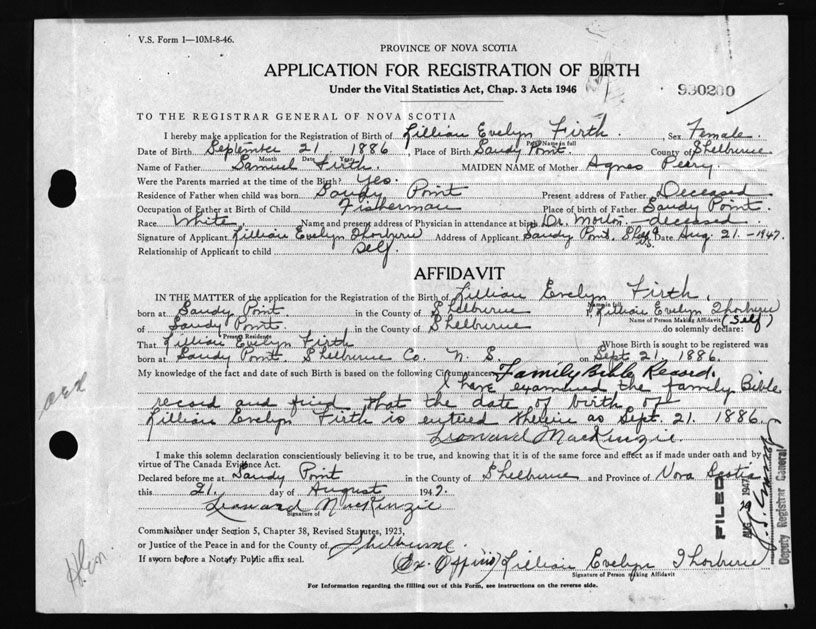 V.S. Form 1—10M-8-46.
PROVINCE OF NOVA SCOTIA
APPLICATION FOR REGISTRATION OF BIRTH
Under the Vital Statistics Act, Chap. 3 Acts 1946
930200
TO THE REGISTRAR GENERAL OF NOVA SCOTIA
I hereby make application for the Registration of Birth of Lillian Evelyn Firth. Sex Female.
Print Name in full
Date of Birth September 21 1886, Place of Birth Sandy Point. County of Shelburne
Month Date Year
Name of Father Samuel Firth. MAIDEN NAME of Mother Agnes Peery.
Were the Parents married at the time of the Birth? Yes.
Residence of Father when child was born Sandy Point Present address of Father Deceased
Occupation of Father at Birth of Child Fisherman Place of birth of Father Sandy Point.
Race White Name and present address of Physician in attendance at birth Dr. Morton - deceased
Signature of Applicant Lillian Evelyn Thorburne Address of Applicant Sandy Point, Date Aug 21 - 1947.
Relationship of Applicant to child Self.
AFFIDAVIT
IN THE MATTER of the application for the Registration of the Birth of Lillian Evelyn Firth,
Name in full
born at Sandy Point. in the County of Shelburne I, Lillian Evelyn Thorburne
Name of Person Making Affidavit (Self)
of Sandy Point. in the County of Shelburne do solemnly declare:
Present Residence
That Lillian Evelyn Firth Whose Birth is sought to be registered was
born at Sandy Point, Shelburne Co. N. S. on Sept. 21, 1886.
My knowledge of the fact and date of such Birth is based on the following Circumstances Family Bible Record.
I have examined the family Bible
record and find that the date of birth of
Lillian Evelyn Firth is entered therein as Sept. 21. 1886.
Leonard MacKinzie
I make this solemn declaration conscientiously believing it to be true, and knowing that it is of the same force and effect as if made under oath and by
virtue of The Canada Evidence Act.
Declared before me at Sandy Point in the County of Shelburne and Province of Nova Scotia
this 21. day of August 1947.
Leonard MacKinzie
Signature of
Commissioner under Section 5, Chapter 38, Revised Statutes, 1923,
or Justice of the Peace in and for the County of Shelburne.
If sworn before a Notary Public affix seal. (Ex. Officio) Lillian Evelyn Thorburne
Signature of Person making Affidavit
For Information regarding the filling out of this Form, see instructions on the reverse side.
FILED
1947
Deputy Registrar General